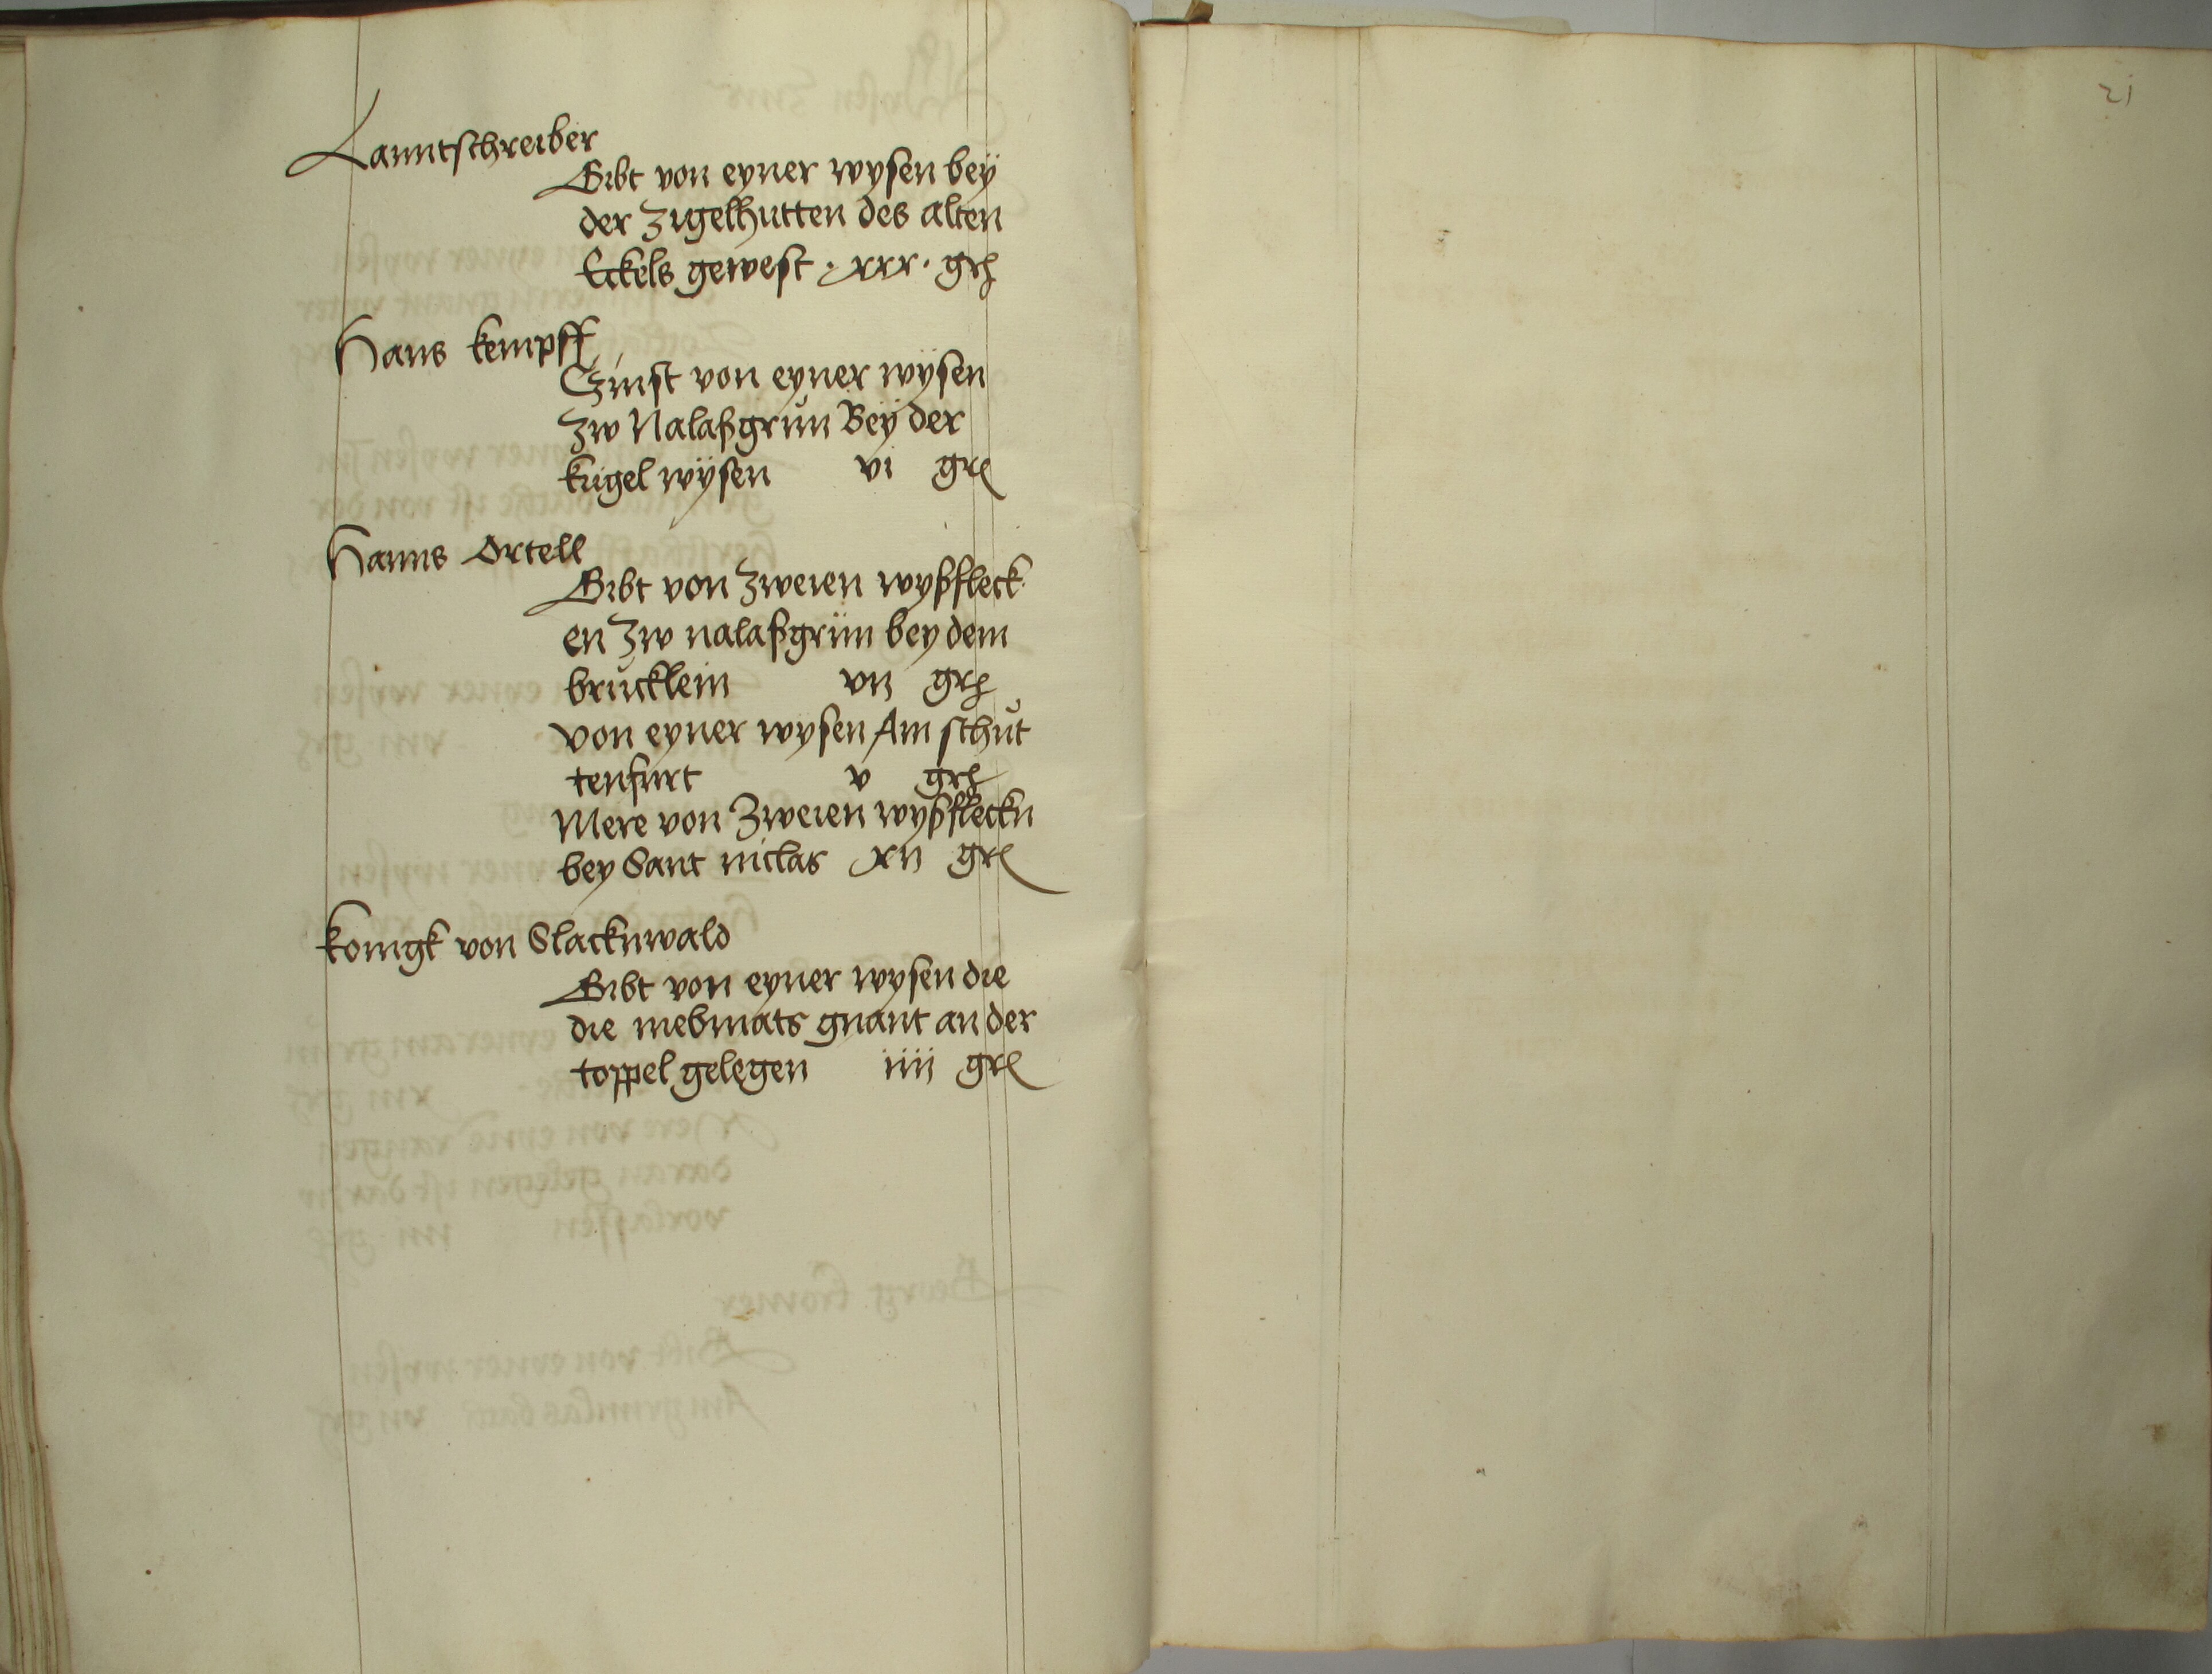 Lanntschreiber
Gibt von eyner wysen bey
der Zigelhutten des alten
Eckels gewest . xxx . gr
Hans kempff
Czinst von eyner wysen
Zw Nalaßgrun Bey der
kugel wysen vi gr
Hanns Ortell
Gibt von Zweien wyßfleck
en Zw nalaßgrün bey dem
brucklein vii gr
von eyner wysen Am schut
tenfurt v gr
Mere von Zweien wyßfleckn
bey Sant niclas xii gr
konigk von Slacknwald
Gibt von eyner wysen die
die mebmats gnant an der
toppel gelegen iiii gr
21